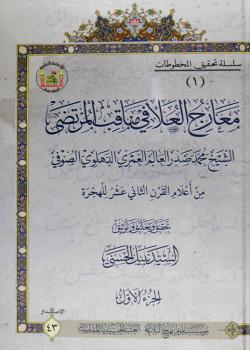 سلسلة تحقيق المخطوطات
(١)
معارج العلا في مناقب المرتضى
الشيخ محمد صدر العالم العمري الدهلوي الصوفي
من أعلام القرن الثاني عشر للهجرة
تحقيق وتعليق
السيد نبيل الحسني
الجزء الأول
الإصدار
٤٣